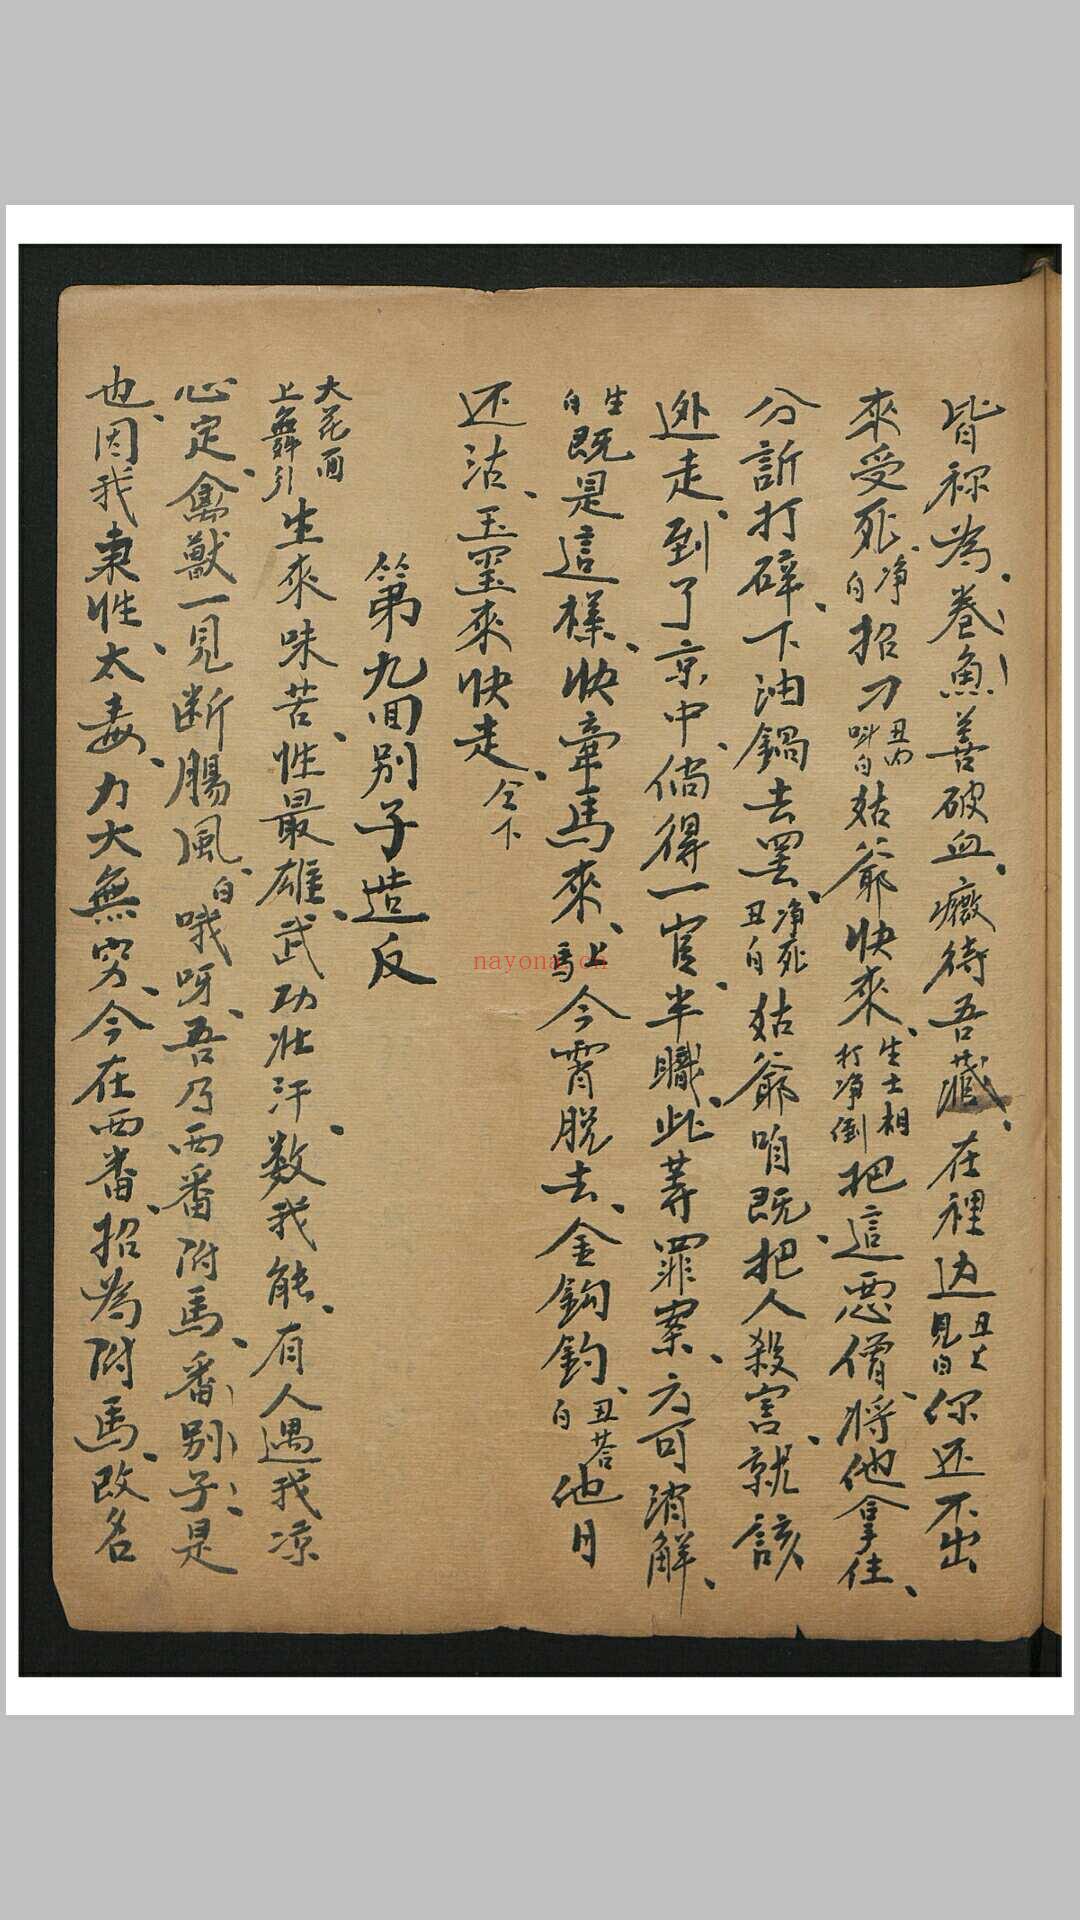 皆称為、卷魚善破血、癥待吾藏、在裡边丑上見白你还不出
來受死、净白招刀丑內呌白姑爺快來、生士相打净倒把這惡僧、將他拿住、
分訴打碎、下油鍋去罢、净死丑白姑爺咱既把人殺害、就該
迯走、到了京中、倘得一官、半職、此等罪案、方可消解、
生白既是這様、快牽馬來、上馬今宵脱去、金鈎釣、丑荅白他日
还沽、玉玺來快走、仝下
第九回别子造反
大花面上舞引生來味苦、性最雄、武功壮汗、数我能、有人遇我凉
心定、禽獸一見断腸風、白哦呀、吾乃西番附馬、番别子、是
也、因我秉性、太毒、力大無穷、今在西番、招為附馬、改名
nayona.cn